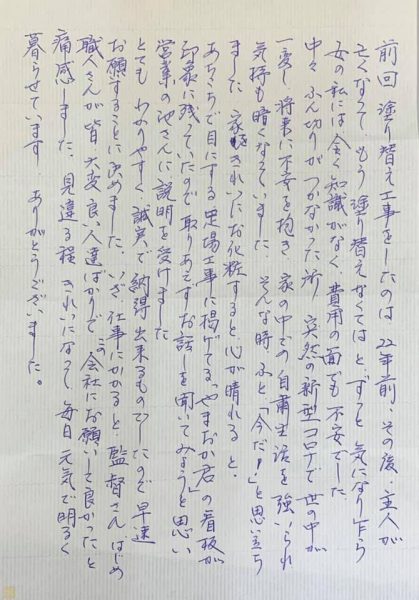 前回 塗り替え工事をしたのは 22年前、その後、主人が
亡くなって もう 塗り替えなくてはと ずっと 気になり乍ら
女の私には 全く知識がなく、費用の面でも不安でした
中々 ふん切りが つかなかった所、突然の新型コロナで 世の中が
一変し、将来に不安を抱き、家の中での自粛生活を 強いられ
気持も暗くなっていました そんな時 ふと「今だ!」と思い立ち
ました。家もきれいにお化粧すると 心が晴れる と、
あちこちで目にする 足場工事に掲げてる「やまおか君」の看板が
印象に残っていたので 取りあえず お話を聞いてみようと思い
営業の池さんに説明を受けました
とても わかりやすく 誠実で 納得出来るものでしたので 早速
お願することに決めました。いざ 仕事にかかると 監督さんはじめ
職人さんが皆 大変良い人達ばかりで この会社にお願いして良かったと
痛感しました。見違る程 きれいになって 毎日 元気で明るく
暮らせています。ありがとうございました。